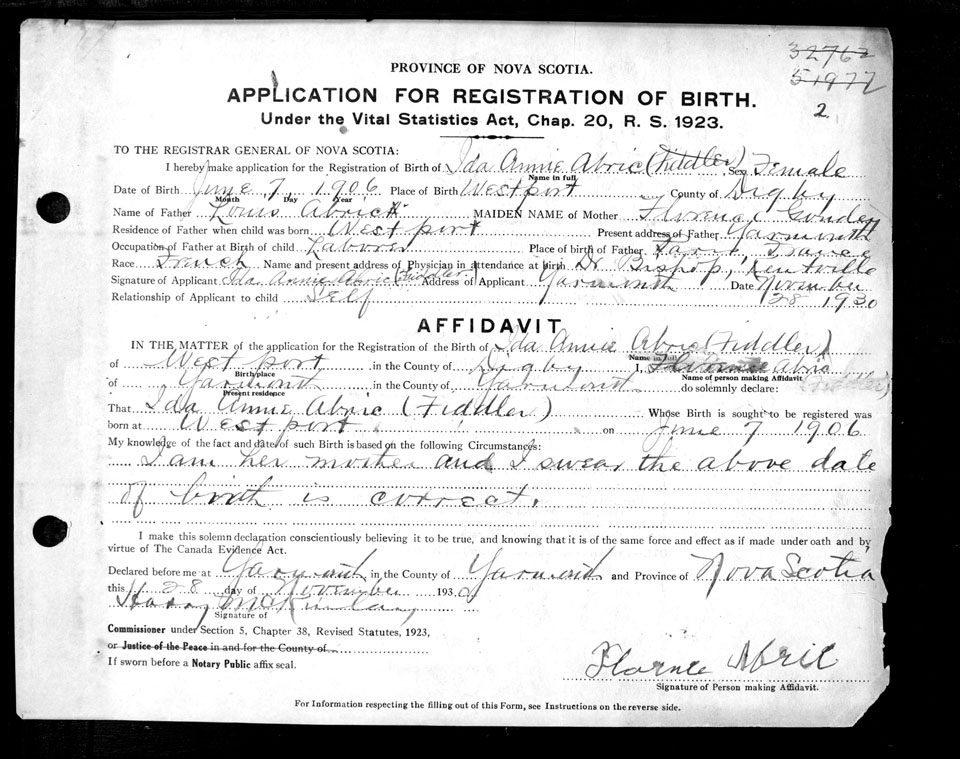 32762
51977
2
PROVINCE OF NOVA SCOTIA.
APPLICATION FOR REGISTRATION OF BIRTH.
Under the Vital Statistics Act, Chap. 20, R. S. 1923.
TO THE REGISTRAR GENERAL OF NOVA SCOTIA:
I hereby make application for the Registration of Birth of Ida Annie Abric (Fiddler) Sex Female
Name in full
Date of Birth June 7, 1906 Place of Birth Westport County of Digby
Month Day Year
Name of Father Louis Abric MAIDEN NAME of Mother Florence
Residence of Father when child was born Westport Present address of Father Yarmouth
Occupation of Father at Birth of child Laborer Place of birth of Father Paris, France
Race French Name and present address of Physician in attendance at birth Dr Bishop, Kentville
Signature of Applicant Ida Annie Abric (Fiddler) Address of Applicant Yarmouth Date November
Relationship of Applicant to child Self 28 1930
AFFIDAVIT
IN THE MATTER of the application for the Registration of the Birth of Ida Annie Abric (Fiddler)
Name in full
of Westport in the County of Digby I, Abric
Birth place Name of person making Affidavit
of Yarmouth in the County of Yarmouth do solemnly declare:
Present residence
That Ida Annie Abric (Fiddler) Whose Birth is sought to be registered was
born at Westport on June 7 1906
My knowledge of the fact and date of such Birth is based on the following Circumstances
I am her mother and I swear the above date
of birth is correct.
I make this solemn declaration conscientiously believing it to be true, and knowing that it is of the same force and effect as if made under oath and by
virtue of The Canada Evidence Act.
Declared before me at Yarmouth in the County of Yarmouth and Province of Nova Scotia
this 28 day of November 1930
Harry McKinlay
Signature of
Commissioner under Section 5, Chapter 38, Revised Statutes, 1923,
or Justice of the Peace in and for the County of
If sworn before a Notary Public affix seal.
Florence Abric
Signature of Person making Affidavit.
For Information respecting the filling out of this Form, see Instructions on the reverse side.